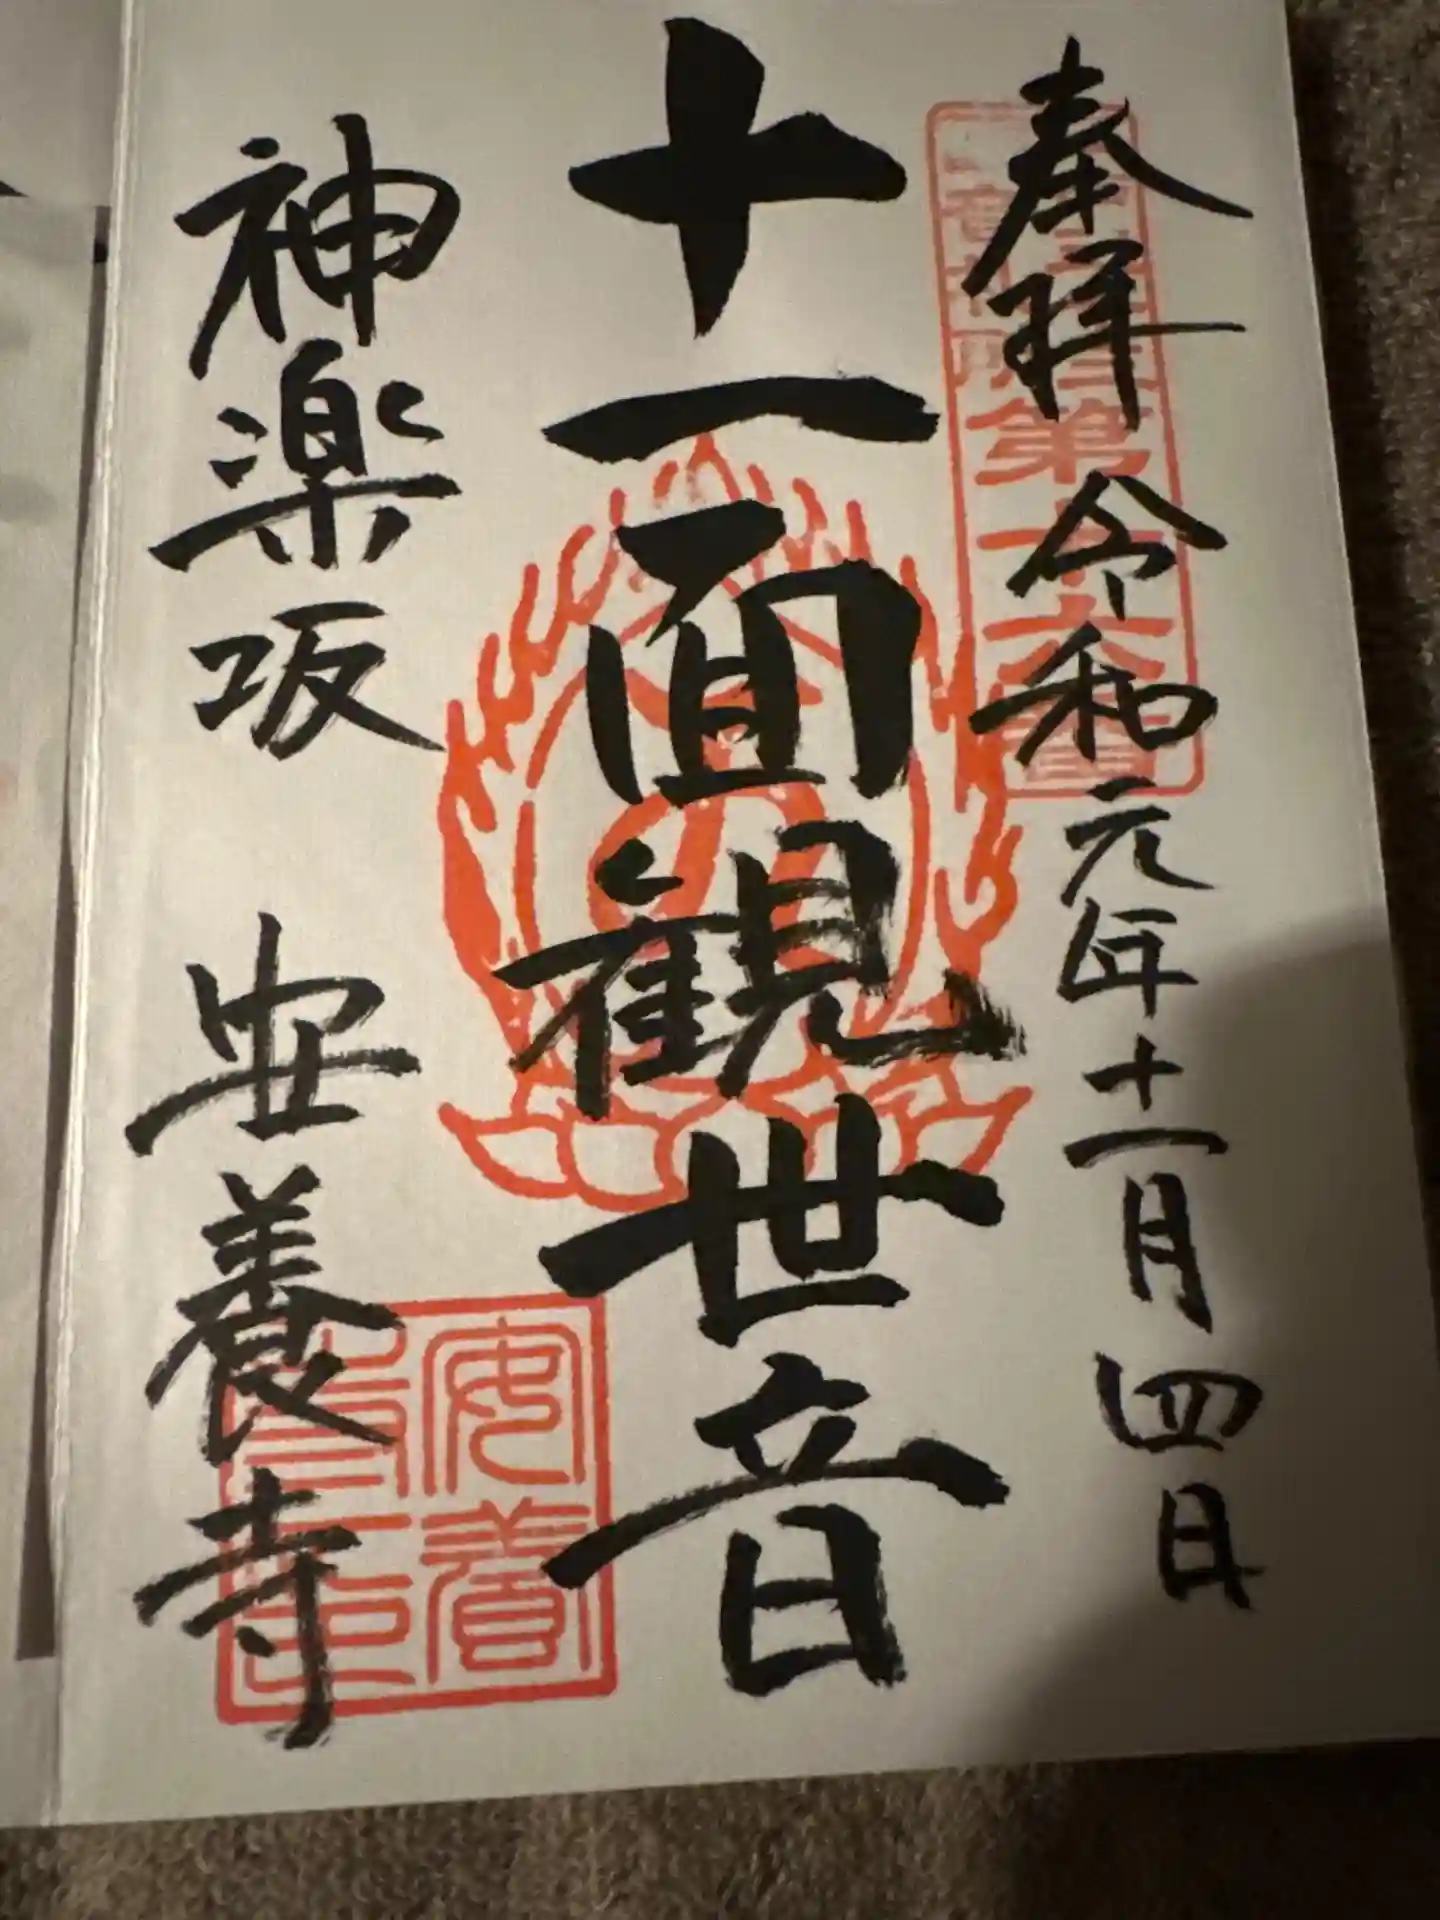 奉拝 令和元年十一月四日
第十六番
十一面観世音
神楽坂 安養寺
安養